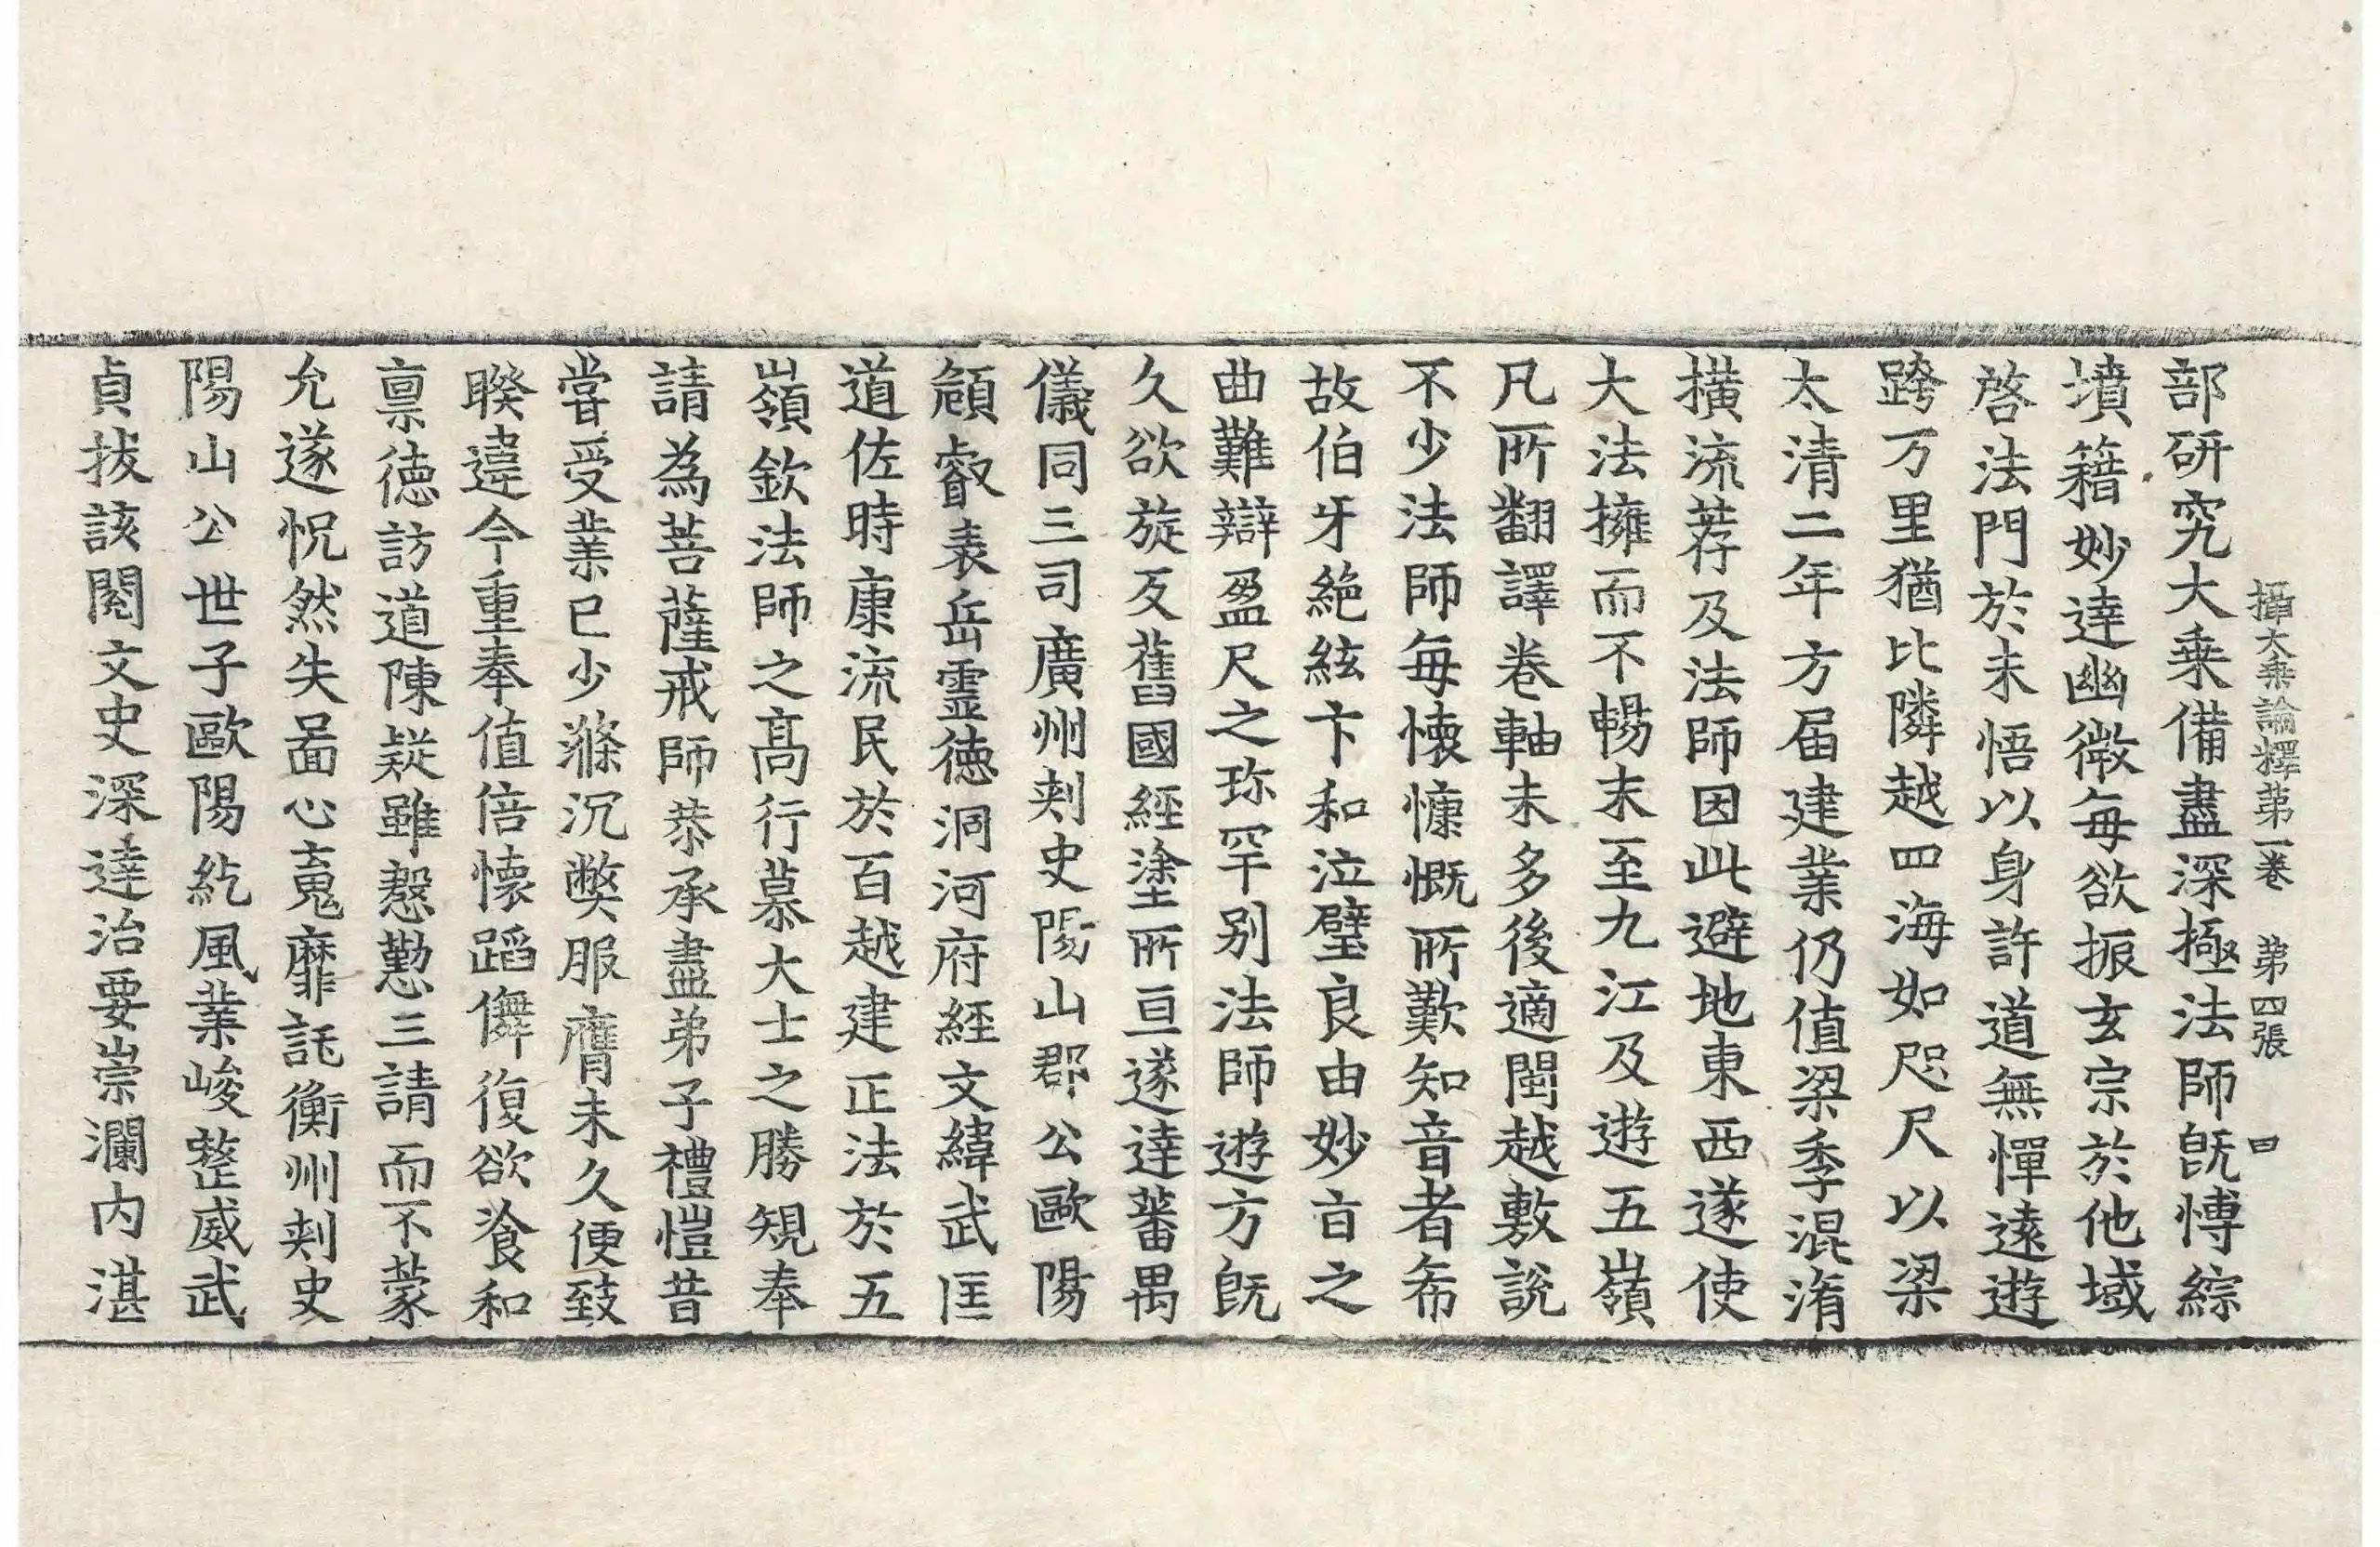 攝大乗論釋第一卷　第四張　四
部研究大乗備盡深極法師旣愽綜
墳籍妙逹幽微每欲振玄宗於他域
啓法門於未悟以身許道無憚遠遊
跨万里猶比隣越四海如咫尺以梁
太清二年方届建業仍值梁季混淆
撗流荐及法師因此避地東西遂使
大法擁而不暢末至九江及遊五嶺
凡所翻譯卷軸未多後適閩越敷說
不少法師每懐慷慨所歎知音者希
故伯牙絶絃卞和泣璧良由妙㫖之
曲難辯盈尺之珎罕别法師遊方旣
久欲旋反舊國經塗所亘遂達蕃禺
儀同三司廣州刾史陽山郡公歐陽
頠叡表岳靈德洞河府經文緯武匡
道佐時康流民於百越建正法於五
嶺欽法師之髙行慕大士之勝䂓奉
請為菩薩戒師恭承盡弟子禮愷昔
嘗受業已少滌沉弊服膺未久便致
睽違今重奉值倍懐蹈儛復欲飡和
禀德訪道陳疑雖慇懃三請而不蒙
允遂怳然失啚心䰟靡託衡州刾史
陽山公世子歐陽紇風業峻整威武
貞拔該閱文史深逹治要崇瀾内湛